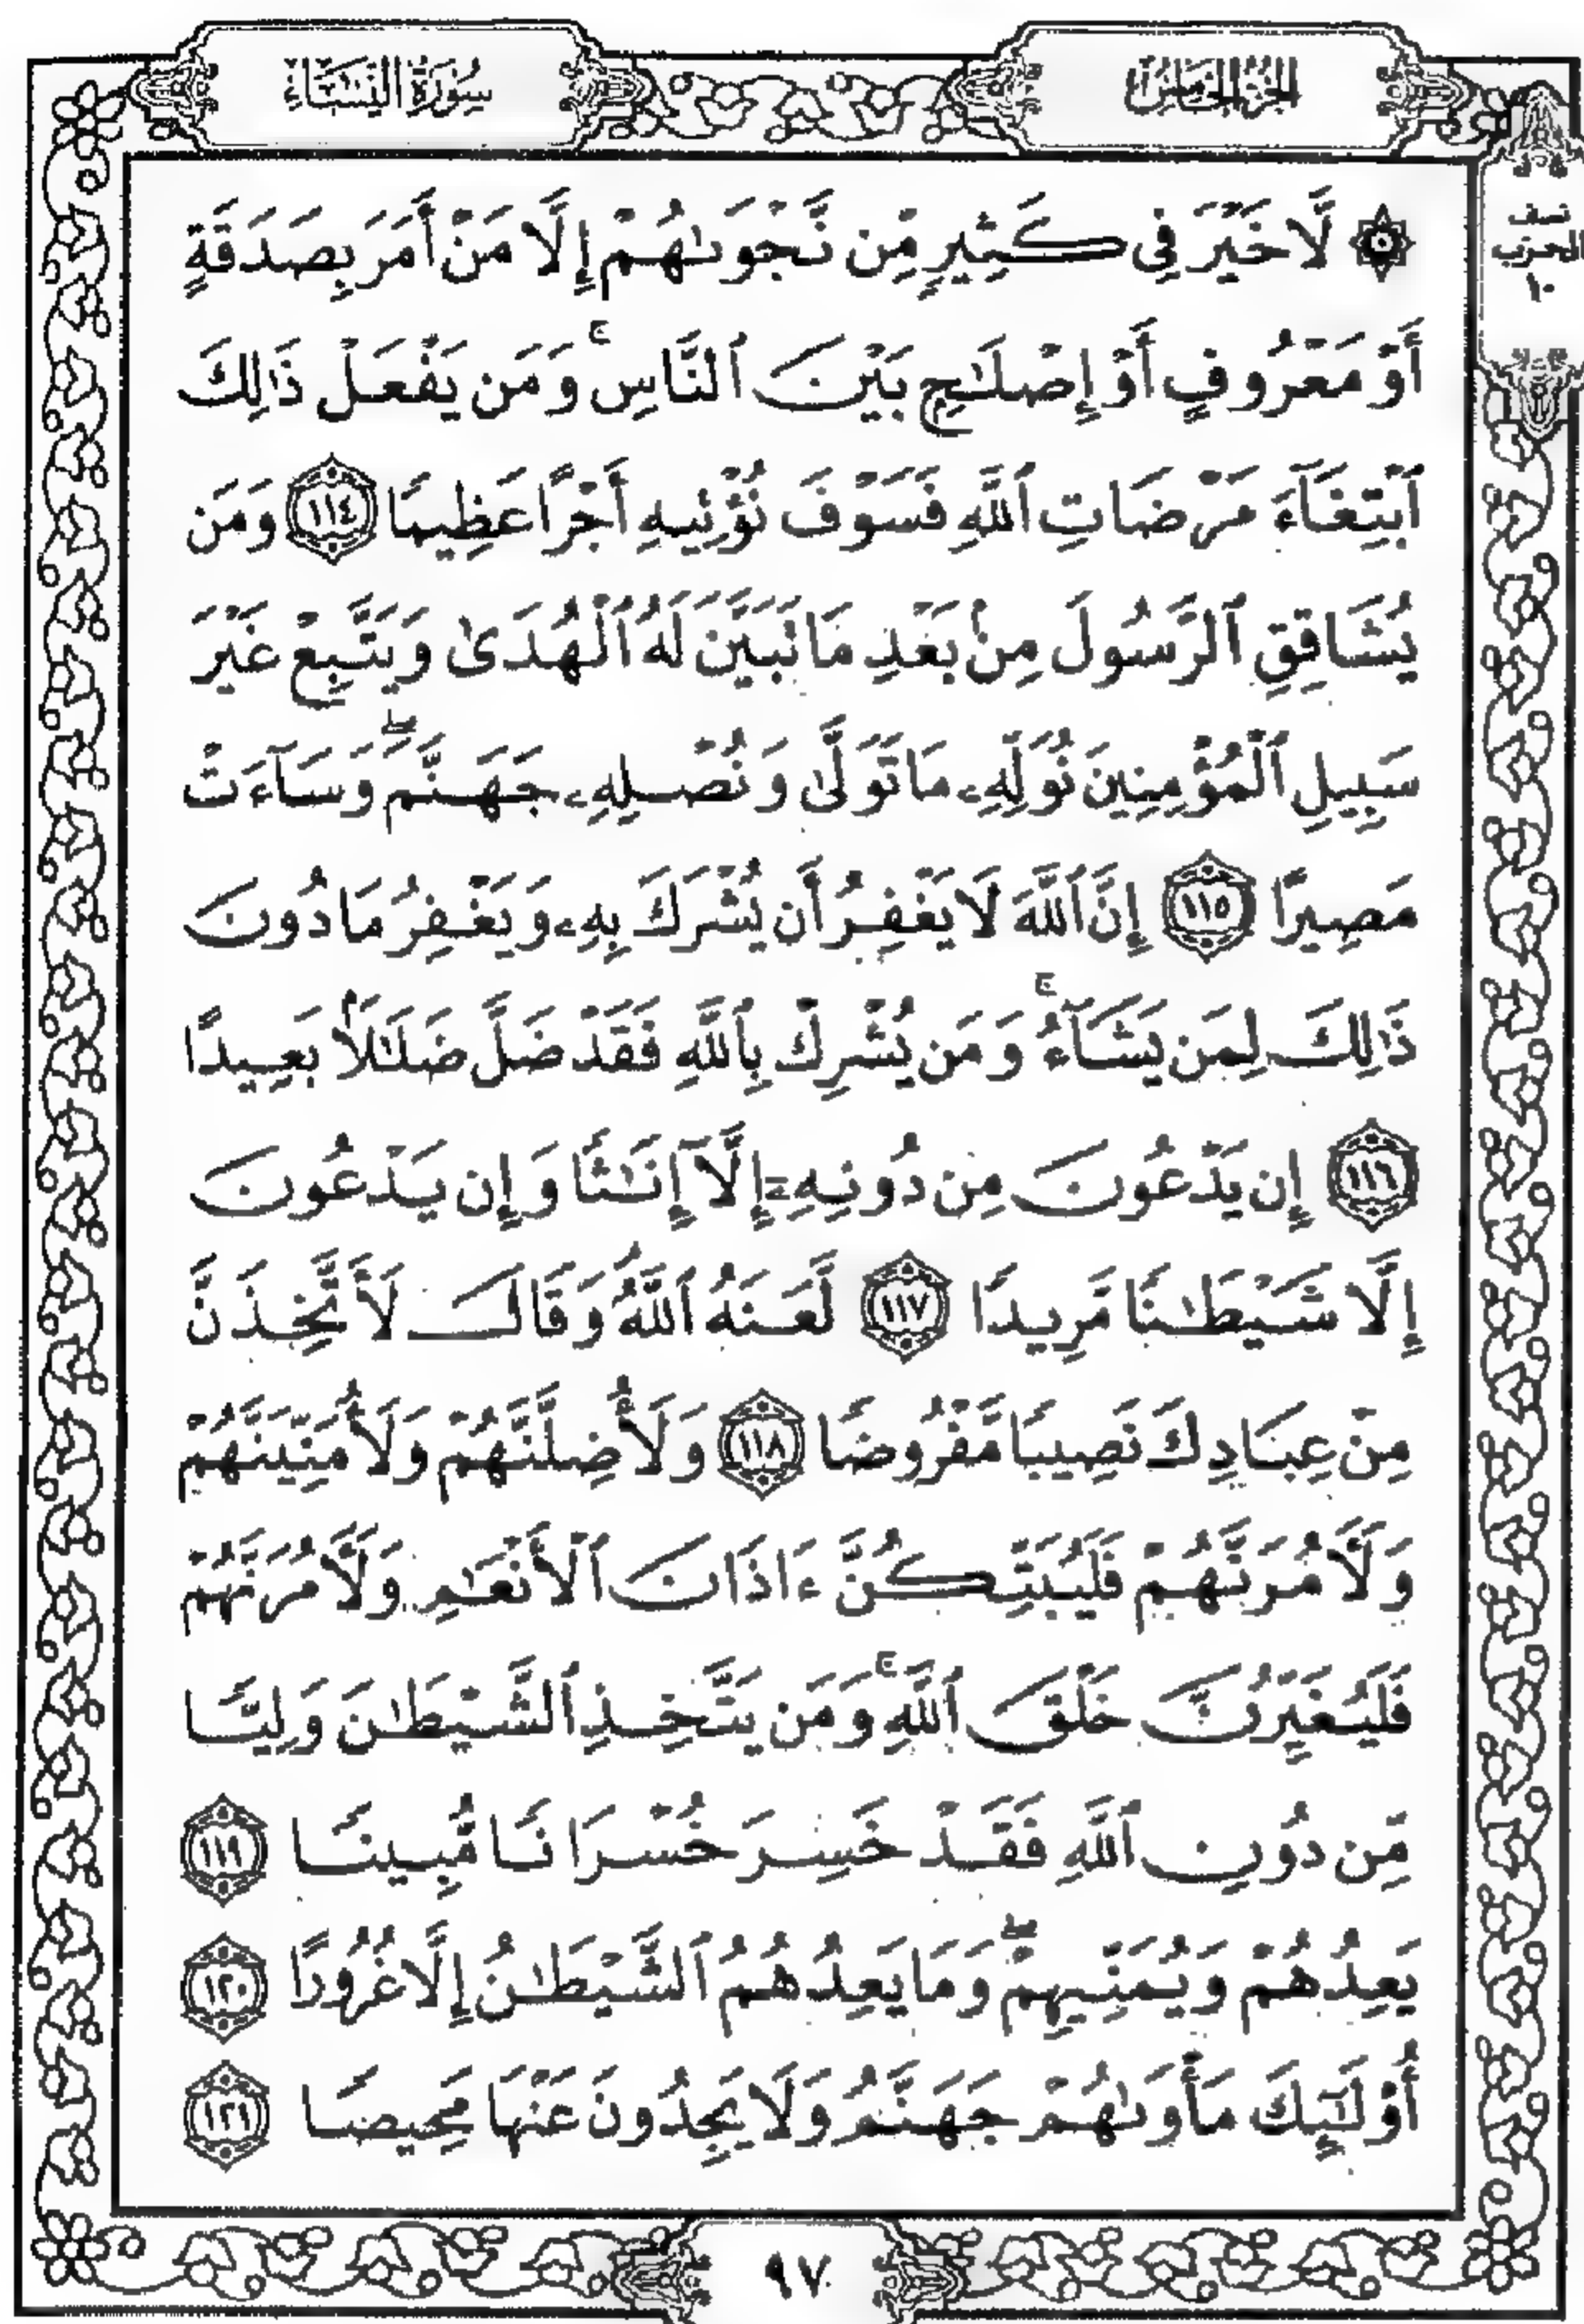 الجزء الخامس
سورة النساء
نصف
الحزب
١٠
۞ لَّا خَيْرَ فِي كَثِيرٍ مِّن نَّجْوَىٰهُمْ إِلَّا مَنْ أَمَرَ بِصَدَقَةٍ
أَوْ مَعْرُوفٍ أَوْ إِصْلَٰحٍ بَيْنَ ٱلنَّاسِ ۚ وَمَن يَفْعَلْ ذَٰلِكَ
ٱبْتِغَآءَ مَرْضَاتِ ٱللَّهِ فَسَوْفَ نُؤْتِيهِ أَجْرًا عَظِيمًا ١١٤ وَمَن
يُشَاقِقِ ٱلرَّسُولَ مِنۢ بَعْدِ مَا تَبَيَّنَ لَهُ ٱلْهُدَىٰ وَيَتَّبِعْ غَيْرَ
سَبِيلِ ٱلْمُؤْمِنِينَ نُوَلِّهِۦ مَا تَوَلَّىٰ وَنُصْلِهِۦ جَهَنَّمَ ۖ وَسَآءَتْ
مَصِيرًا ١١٥ إِنَّ ٱللَّهَ لَا يَغْفِرُ أَن يُشْرَكَ بِهِۦ وَيَغْفِرُ مَا دُونَ
ذَٰلِكَ لِمَن يَشَآءُ ۚ وَمَن يُشْرِكْ بِٱللَّهِ فَقَدْ ضَلَّ ضَلَٰلًۢا بَعِيدًا
١١٦ إِن يَدْعُونَ مِن دُونِهِۦٓ إِلَّآ إِنَٰثًا وَإِن يَدْعُونَ
إِلَّا شَيْطَٰنًا مَّرِيدًا ١١٧ لَّعَنَهُ ٱللَّهُ ۘ وَقَالَ لَأَتَّخِذَنَّ
مِنْ عِبَادِكَ نَصِيبًا مَّفْرُوضًا ١١٨ وَلَأُضِلَّنَّهُمْ وَلَأُمَنِّيَنَّهُمْ
وَلَـَٔامُرَنَّهُمْ فَلَيُبَتِّكُنَّ ءَاذَانَ ٱلْأَنْعَٰمِ وَلَـَٔامُرَنَّهُمْ
فَلَيُغَيِّرُنَّ خَلْقَ ٱللَّهِ ۚ وَمَن يَتَّخِذِ ٱلشَّيْطَٰنَ وَلِيًّا
مِّن دُونِ ٱللَّهِ فَقَدْ خَسِرَ خُسْرَانًا مُّبِينًا ١١٩
يَعِدُهُمْ وَيُمَنِّيهِمْ ۖ وَمَا يَعِدُهُمُ ٱلشَّيْطَٰنُ إِلَّا غُرُورًا ١٢٠
أُو۟لَٰٓئِكَ مَأْوَىٰهُمْ جَهَنَّمُ وَلَا يَجِدُونَ عَنْهَا مَحِيصًا ١٢١
٩٧